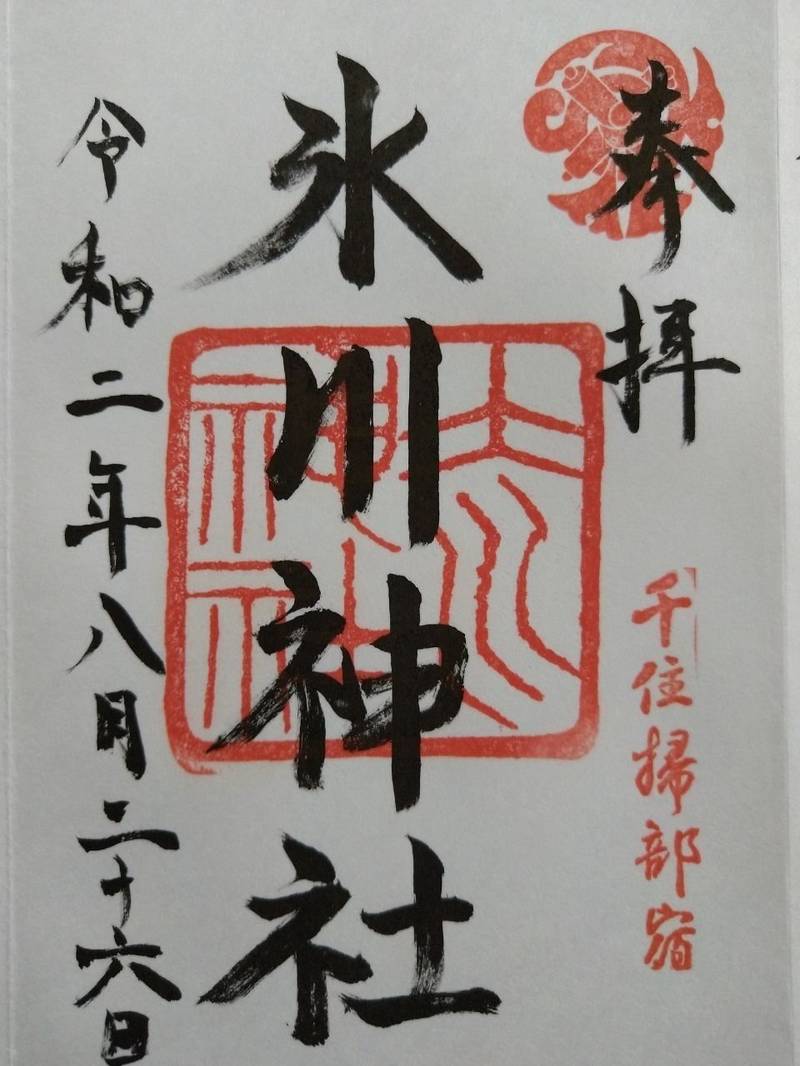 奉拝
千住掃部宿
氷川神社
令和二年八月二十六日